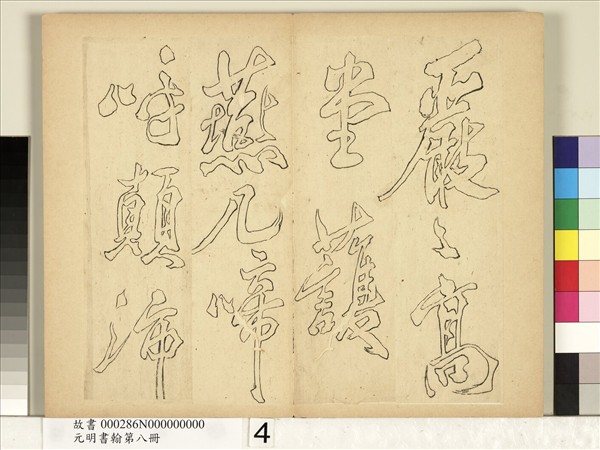 嚴〻高
堂護
燕几啼
呼顛沛
故書 000286N000000000
元明書翰第八冊
4